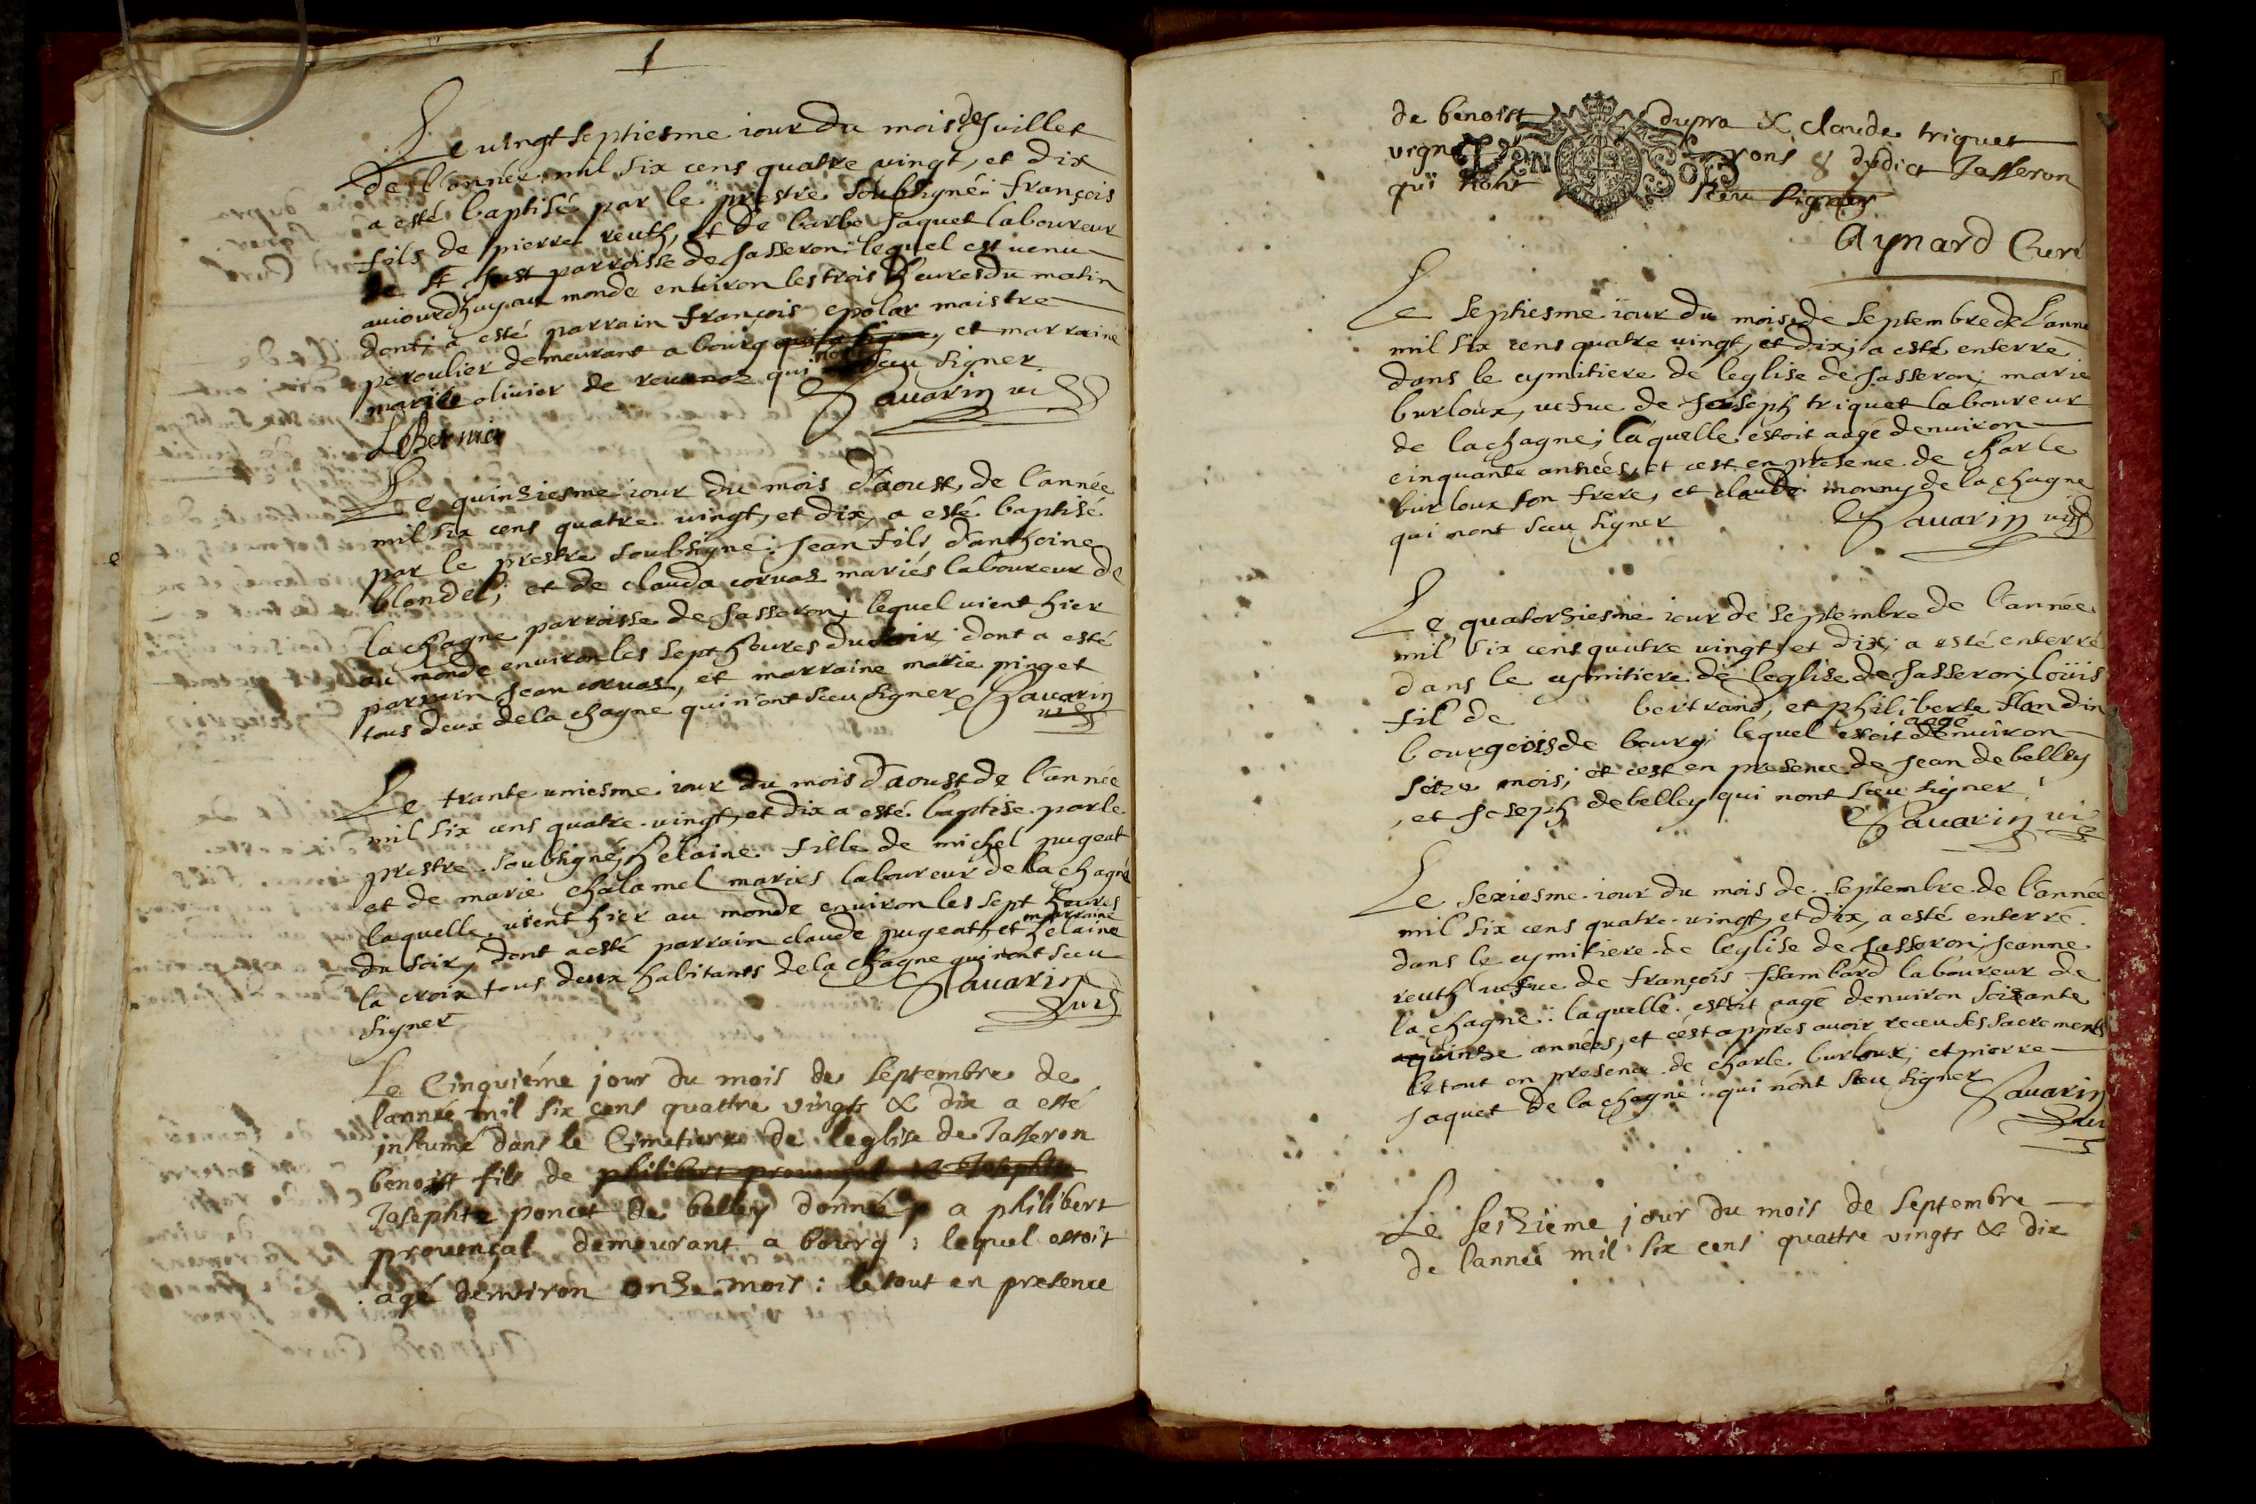 Le vingt septiesme iour du mois de Juillet
de l'année mil six cens quatre vingt, et dix
a esté baptisé par le prestre soubsigné: françois
fils de pierre reuth, et de barbe Jaquet laboureur
de st Just parroisse de Jasseron: lequel est venu
auiourdhuy au monde environ les trois heures du matin
dont; a esté parrain françois epolar maistre
peroulier demeurant a bourg et marraine
marie olivier de revonoz qui nont sceu signer
Savarin vi
Le quinziesme iour du mois d'aoust, de l'année
mil six cens quatre vingt, et dix, a esté baptisé
par le prestre soubsigné: Jean fils d'anthoine
blondel; et de clauda corvaz mariés laboureur de
la chagne parroisse de Jasseron; lequel vient hier
au monde environ les sept heures du soir; dont a esté
parrain Jean corvaz, et marraine marie pinget
tous deux de la chagne qui n'ont sceu signer Savarin
vi
Le trante uniesme iour du mois d'aoust de l'année
mil six cens quatre vingt, et dix a esté baptise par le
prestre soubsigné; helaine fille de michel pugeat
et de marie chalamel mariés laboureur de la chagne
laquelle vient hier au monde environ les sept heures
du soir, dont a esté parrain claude pugeat, et marraine helaine
la croix tous deux habitants de la chagne qui n'ont sceu
signer Savarin
vi
Le Cinquiéme jour du mois de septembre de
l'année mil six cens quattre vingts & dix a esté
inhumé dans le Cimetiere de leglise de Jasseron
benoist fils de philibert provençal & Josephte
Josephte poncet de belley donnée a philibert
provençal demeurant a bourg: lequel estoit
agé denviron onze mois: le tout en presence
de benoist dupra & claude triquet
vigne rons & dudict Jasseron
qui nont sceu signer
Aynard Curé
Le septiesme iour du mois de septembre de l'anne
mil six cens quatre vingt, et dix; a esté enterré
dans le cymitiere de leglise de Jasseron; marie
burloux, vefue de Joseph triquet laboureur
de lachagne; laquelle estoit aagé denviron
cinquante années, et cest en presence de charle
burloux son frere, et claude monny de la chagne
qui nont sceu signer Savarin vi
Le quatorziesme iour de septembre de l'année
mil six cens quatre vingt, et dix; a esté enterré
dans le cymitiere de leglise de Jasseron; loüis
fil de bertrand, et philiberte flandin
bourgeois de bourg; lequel estoit aagé denviron
seize mois; et cest en presence de Jean de belley
, et Joseph de belley qui nont sceu signer
Savarin vi
Le sexiesme iour du mois de septembre de l'année
mil six cens quatre vingt, et dix, a esté enterré
dans le cymitiere de leglise de Jasseron; Jeanne
reuth vefue de françois flambard laboureur de
la chagne: laquelle estoit aagé denviron soixante
quinze années, et cest appres avoir receu ses sacrements
le tout en presence de charle burloux; et pierre
Jaquet de la chagne: qui nont sceu signer Savarin
vi
Le seizième jour du mois de septembre
de l'année mil six cens quattre vingts & dix